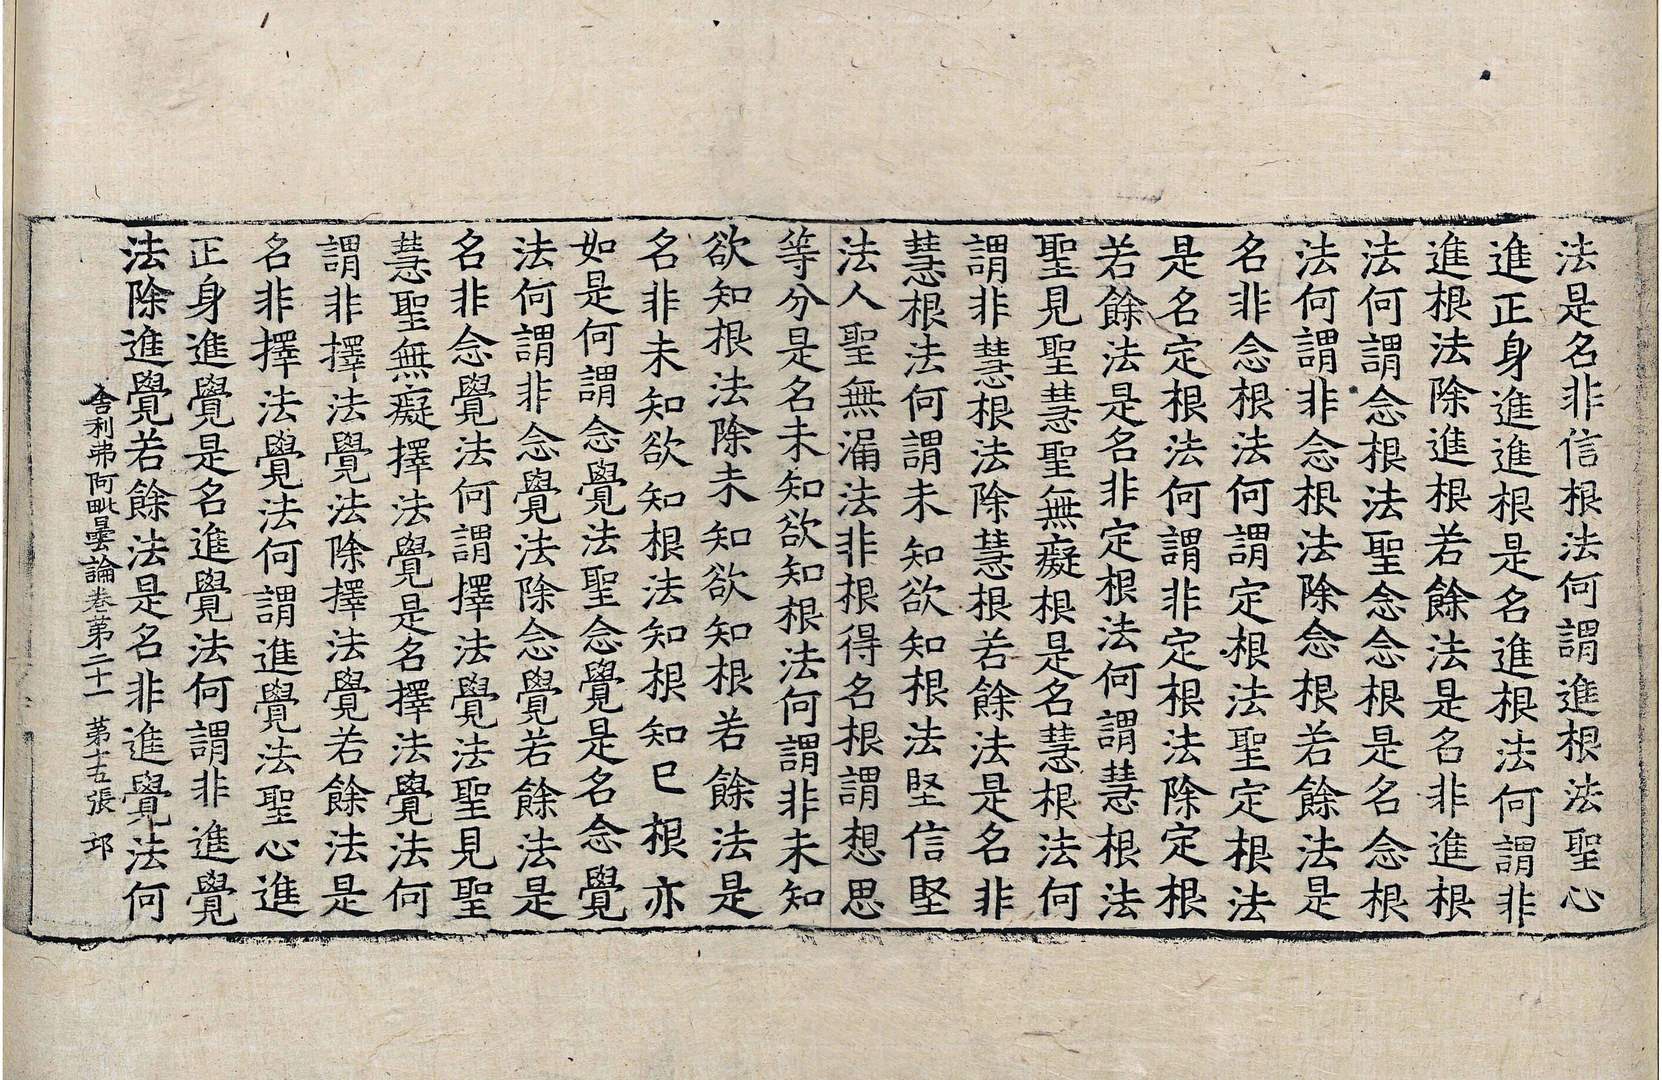 法是名非信根法何謂進根法聖心
進正身進進根是名進根法何謂非
進根法除進根若餘法是名非進根
法何謂念根法聖念念根是名念根
法何謂非念根法除念根若餘法是
名非念根法何謂定根法聖定根法
是名定根法何謂非定根法除定根
若餘法是名非定根法何謂慧根法
聖見聖慧聖無癡根是名慧根法何
謂非慧根法除慧根若餘法是名非
慧根法何謂未知欲知根法堅信堅
法人聖無漏法非根得名根謂想思
等分是名未知欲知根法何謂非未知
欲知根法除未知欲知根若餘法是
名非未知欲知根法知根知已根亦
如是何謂念覺法聖念覺是名念覺
法何謂非念覺法除念覺若餘法是
名非念覺法何謂擇法覺法聖見聖
慧聖無癡擇法覺是名擇法覺法何
謂非擇法覺法除擇法覺若餘法是
名非擇法覺法何謂進覺法聖心進
正身進覺是名進覺法何謂非進覺
法除進覺若餘法是名非進覺法何
舍利弗阿毗曇論卷第二十一 第十五張 邛